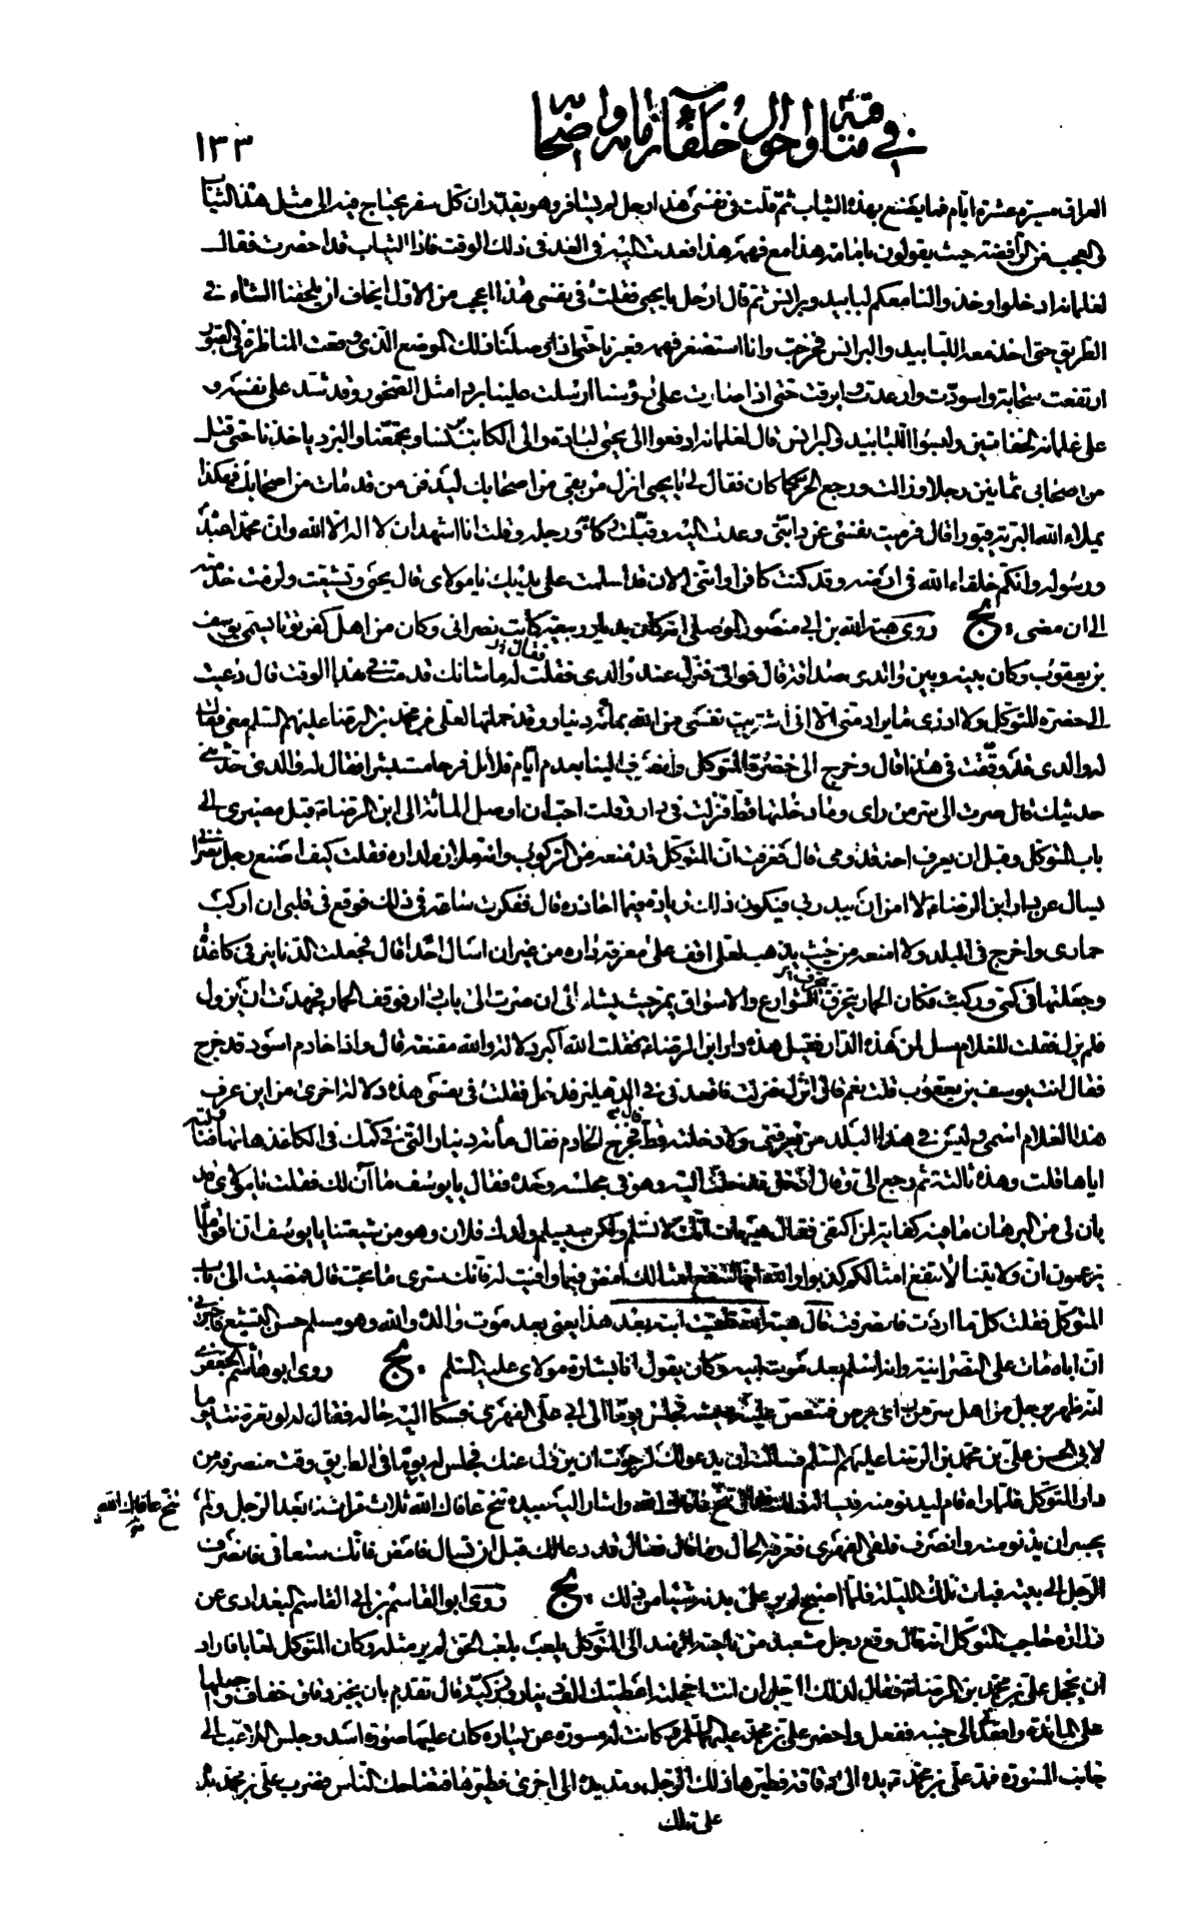 في مناقبه واحوال خلفاء زمانه واصحابه
١٣٣
العراق مسيرة عشرة ايام فما يصنع بهذه الثياب ثم قلت في نفسى هذا رجل لم يسافر وهو يقدر ان كل سفر يحتاج فيه الى مثل هذه الثياب
والعجب من الرافضة حيث يقولون بامامة هذا مع فهمه هذا فعدت اليه في الغد في ذلك الوقت فاذا الثياب قد احضرت فقال
لغلمانه ادخلوا وخذوا لنا معكم لبابيد وبرانس ثم قال ارحل يا يحيى فقلت في نفسى هذا اعجب من الاول ايخاف ان يلحقنا الشتاء في
الطريق حتى اخذ معه اللبابيد والبرانس فخرجت وانا استصغر فهمه فسرنا حتى اذا وصلنا ذلك الموضع الذي وقعت المناظرة في القبور
ارتفعت سحابة واسودت وارعدت وابرقت حتى اذا صارت على رؤسنا ارسلت علينا بردا مثل الصخور وقد شد على نفسه و
على غلمانه الخفاتين ولبسوا اللبابيد والبرانس قال لغلمانه ادفعوا الى يحيى لبادة والى الكاتب برنسا وتجمعنا والبرد ياخذنا حتى قتل
من اصحابي ثمانين رجلا وزالت ورجع الحر كما كان فقال لي يا يحيى انزل من بقى من اصحابك ليدفن من قد مات من اصحابك فهكذا
يملاء الله البرية قبورا قال فرميت نفسى عن دابتي وعدت اليه وقبلت ركابه ورجله وقلت انا اشهد ان لا اله الا الله وان محمدا عبده
ورسوله وانكم خلفاء الله في ارضه وقد كنت كافرا وانني الان قد اسلمت على يديك يا مولاى قال يحيى وتشيعت ولزمت خدمته
الى ان مضى ؛ يج روى هبة الله بن ابي منصور الموصلي انه كان بديار ربيعة كاتب نصراني وكان من اهل كفرتوثا يسمى يوسف
بن يعقوب وكان بينه وبين والدى صداقة قال فوافى فنزل عند والدى فقال له فقلت له ما شانك قدمت في هذا الوقت قال دعيت
الى حضرة المتوكل ولا ادرى ما يراد مني الا اني اشتريت نفسى من الله بماة دينار وقد حملتها لعلي بن محمد بن الرضا عليهم السلم معي فقال
له والدى قد وقفت في هذا قال وخرج الى حضرة المتوكل وانصرف الينا بعد ايام قلائل فرحا مستبشرا فقال له والدى حدثني
حديثك قال صرت الى سر من راى وما دخلتها قط فنزلت في دار وقلت احب ان اوصل المائة الى ابن الرضا ع قبل مصيرى الى
باب المتوكل وقبل ان يعرف احد قدومى قال فعرفت ان المتوكل قد منعه من الركوب وانه ملازم لداره فقلت كيف اصنع رجل نصراني
يسال عن دار ابن الرضا ع لا امن ان يبدر بي فيكون ذلك زيادة فيما احاذره قال ففكرت ساعة في ذلك فوقع في قلبي ان اركب
حمارى واخرج في البلد ولا امنعه من حيث يذهب لعلي اقف على معرفة داره من غير ان اسال احدا قال فجعلت الدنانير في كاغذ
وجعلتها في كمي وركبت فكان الحمار يتخرق الشوارع والاسواق يمر حيث يشاء الى ان صرت الى باب دار فوقف الحمار فجهدت ان يزول
فلم يزل فقلت للغلام سل لمن هذه الدار فقيل هذه دار ابن الرضا ع فقلت الله اكبر دلالة والله مقنعة قال واذا خادم اسود قد خرج
فقال انت يوسف بن يعقوب قلت نعم قال انزل فنزلت فاقعدني في الدهليز فدخل فقلت في نفسى هذه دلالة اخرى من اين عرف
هذا الغلام اسمى وليس في هذا البلد من يعرفني ولا دخلته قط قال فخرج الخادم فقال مأة دينار التي في كمك في الكاغذ هاتها فناولته
اياها قلت وهذه ثالثة ثم رجع الى وقال ادخل فدخلت اليه وهو في مجلسه وحده فقال يا يوسف ما آن لك فقلت يا مولاى قد
بان لي من البرهان ما فيه كفاية لمن اكتفى فقال هيهات انك لا تسلم ولكن سيسلم ولدك فلان وهو من شيعتنا يا يوسف ان اقواما
يزعمون ان ولايتنا لا تنفع امثالكم كذبوا والله انها لتنفع امثالك امض فيما وافيت له فانك سترى ما تحب قال فمضيت الى باب
المتوكل فقلت كل ما اردت فانصرفت قال هبة الله فلقيت ابنه بعد هذا يعني بعد موت والده والله وهو مسلم حسن التشيع فاخبرني
ان اباه مات على النصرانية وانه اسلم بعد موت ابيه وكان يقول انا بشارة مولاى عليه السلم ؛ يج روى ابو هاشم الجعفرى
انه ظهر برجل من اهل سر من راى برص فتنغص عليه عيشه فجلس يوما الى ابي على الفهرى فشكا اليه حاله فقال له لو تعرضت يوما
لابي الحسن علي بن محمد بن الرضا عليهم السلم فسالته ان يدعو لك لرجوت ان يزول عنك فجلس له يوما في الطريق وقت منصرفه من
دار المتوكل فلما راه قام ليدنو منه فيساله ذلك فقال تنح عافاك الله واشار اليه بيده تنح عافاك الله ثلاث مرات فابعد الرجل ولم
تنح عافاك الله
يجسر ان يدنو منه وانصرف فلقى الفهرى فعرفه الحال وما قال فقال قد دعا لك قبل ان تسال فامض فانك ستعافى فانصرف
الرجل الى بيته فبات تلك الليلة فلما اصبح لم ير على بدنه شيئا من ذلك ؛ يج روى ابو القاسم بن ابي القاسم البغدادى عن
زرارة حاجب المتوكل انه قال وقع رجل مشعبذ من ناحية الهند الى المتوكل يلعب بلعب الحق لم ير مثله وكان المتوكل لعابا فاراد
ان يخجل علي بن محمد بن الرضا ع فقال لذلك الرجل ان انت اخجلته اعطيتك الف دينار زكية قال تقدم بان يخبز رقاق خفاف واجعلها
على المائدة واقعدني الى جنبه ففعل واحضر علي بن محمد عليهما السلم وكانت له مسورة عن يساره كان عليها صورة اسد وجلس اللاعب الى
جانب المسورة فمد علي بن محمد ع يده الى رقاقة فطيرها ذلك الرجل ومد يده الى اخرى فطيرها فتضاحك الناس فضرب علي بن محمد يده
على تلك